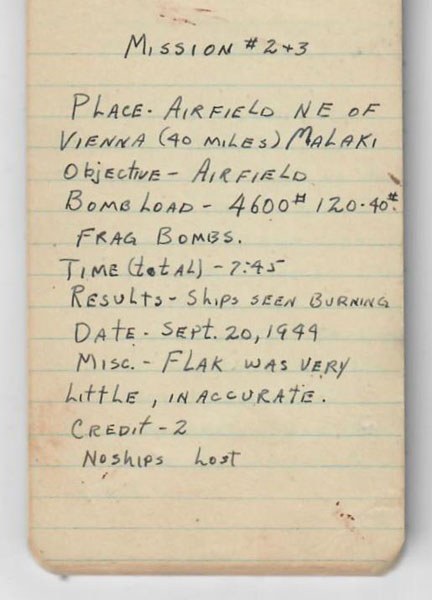 Mission # 2+3
Place- Airfield NE of
Vienna (40 miles) Malaki
Objective- Airfield
Bomb Load - 4600# 120-40#
Frag Bombs.
Time (total) - 7:45
Results- Ships seen burning
Date- Sept. 20, 1944
Misc. - Flak was very
little, inaccurate.
Credit - 2
No ships lost